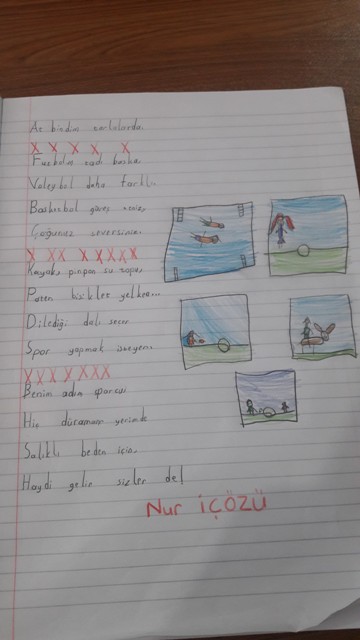 At bindim zorlolarda
X X X X X
Futbolun tadı başka,
Voleybol daha farklı
Basketbol güreş
Çoğunuz seversiniz.
X XX XXXXX
Kayak, pinpon su topu,
Paten bisiklet yelken...
Dilediği dalı seçer
Spor yapmak isteyen.
XXX XXXX
Benim adım sporcu
Hiç duramam yerimde
Salıklı beden için.
Haydi gelin sizler de!
Nur İÇÖZÜ